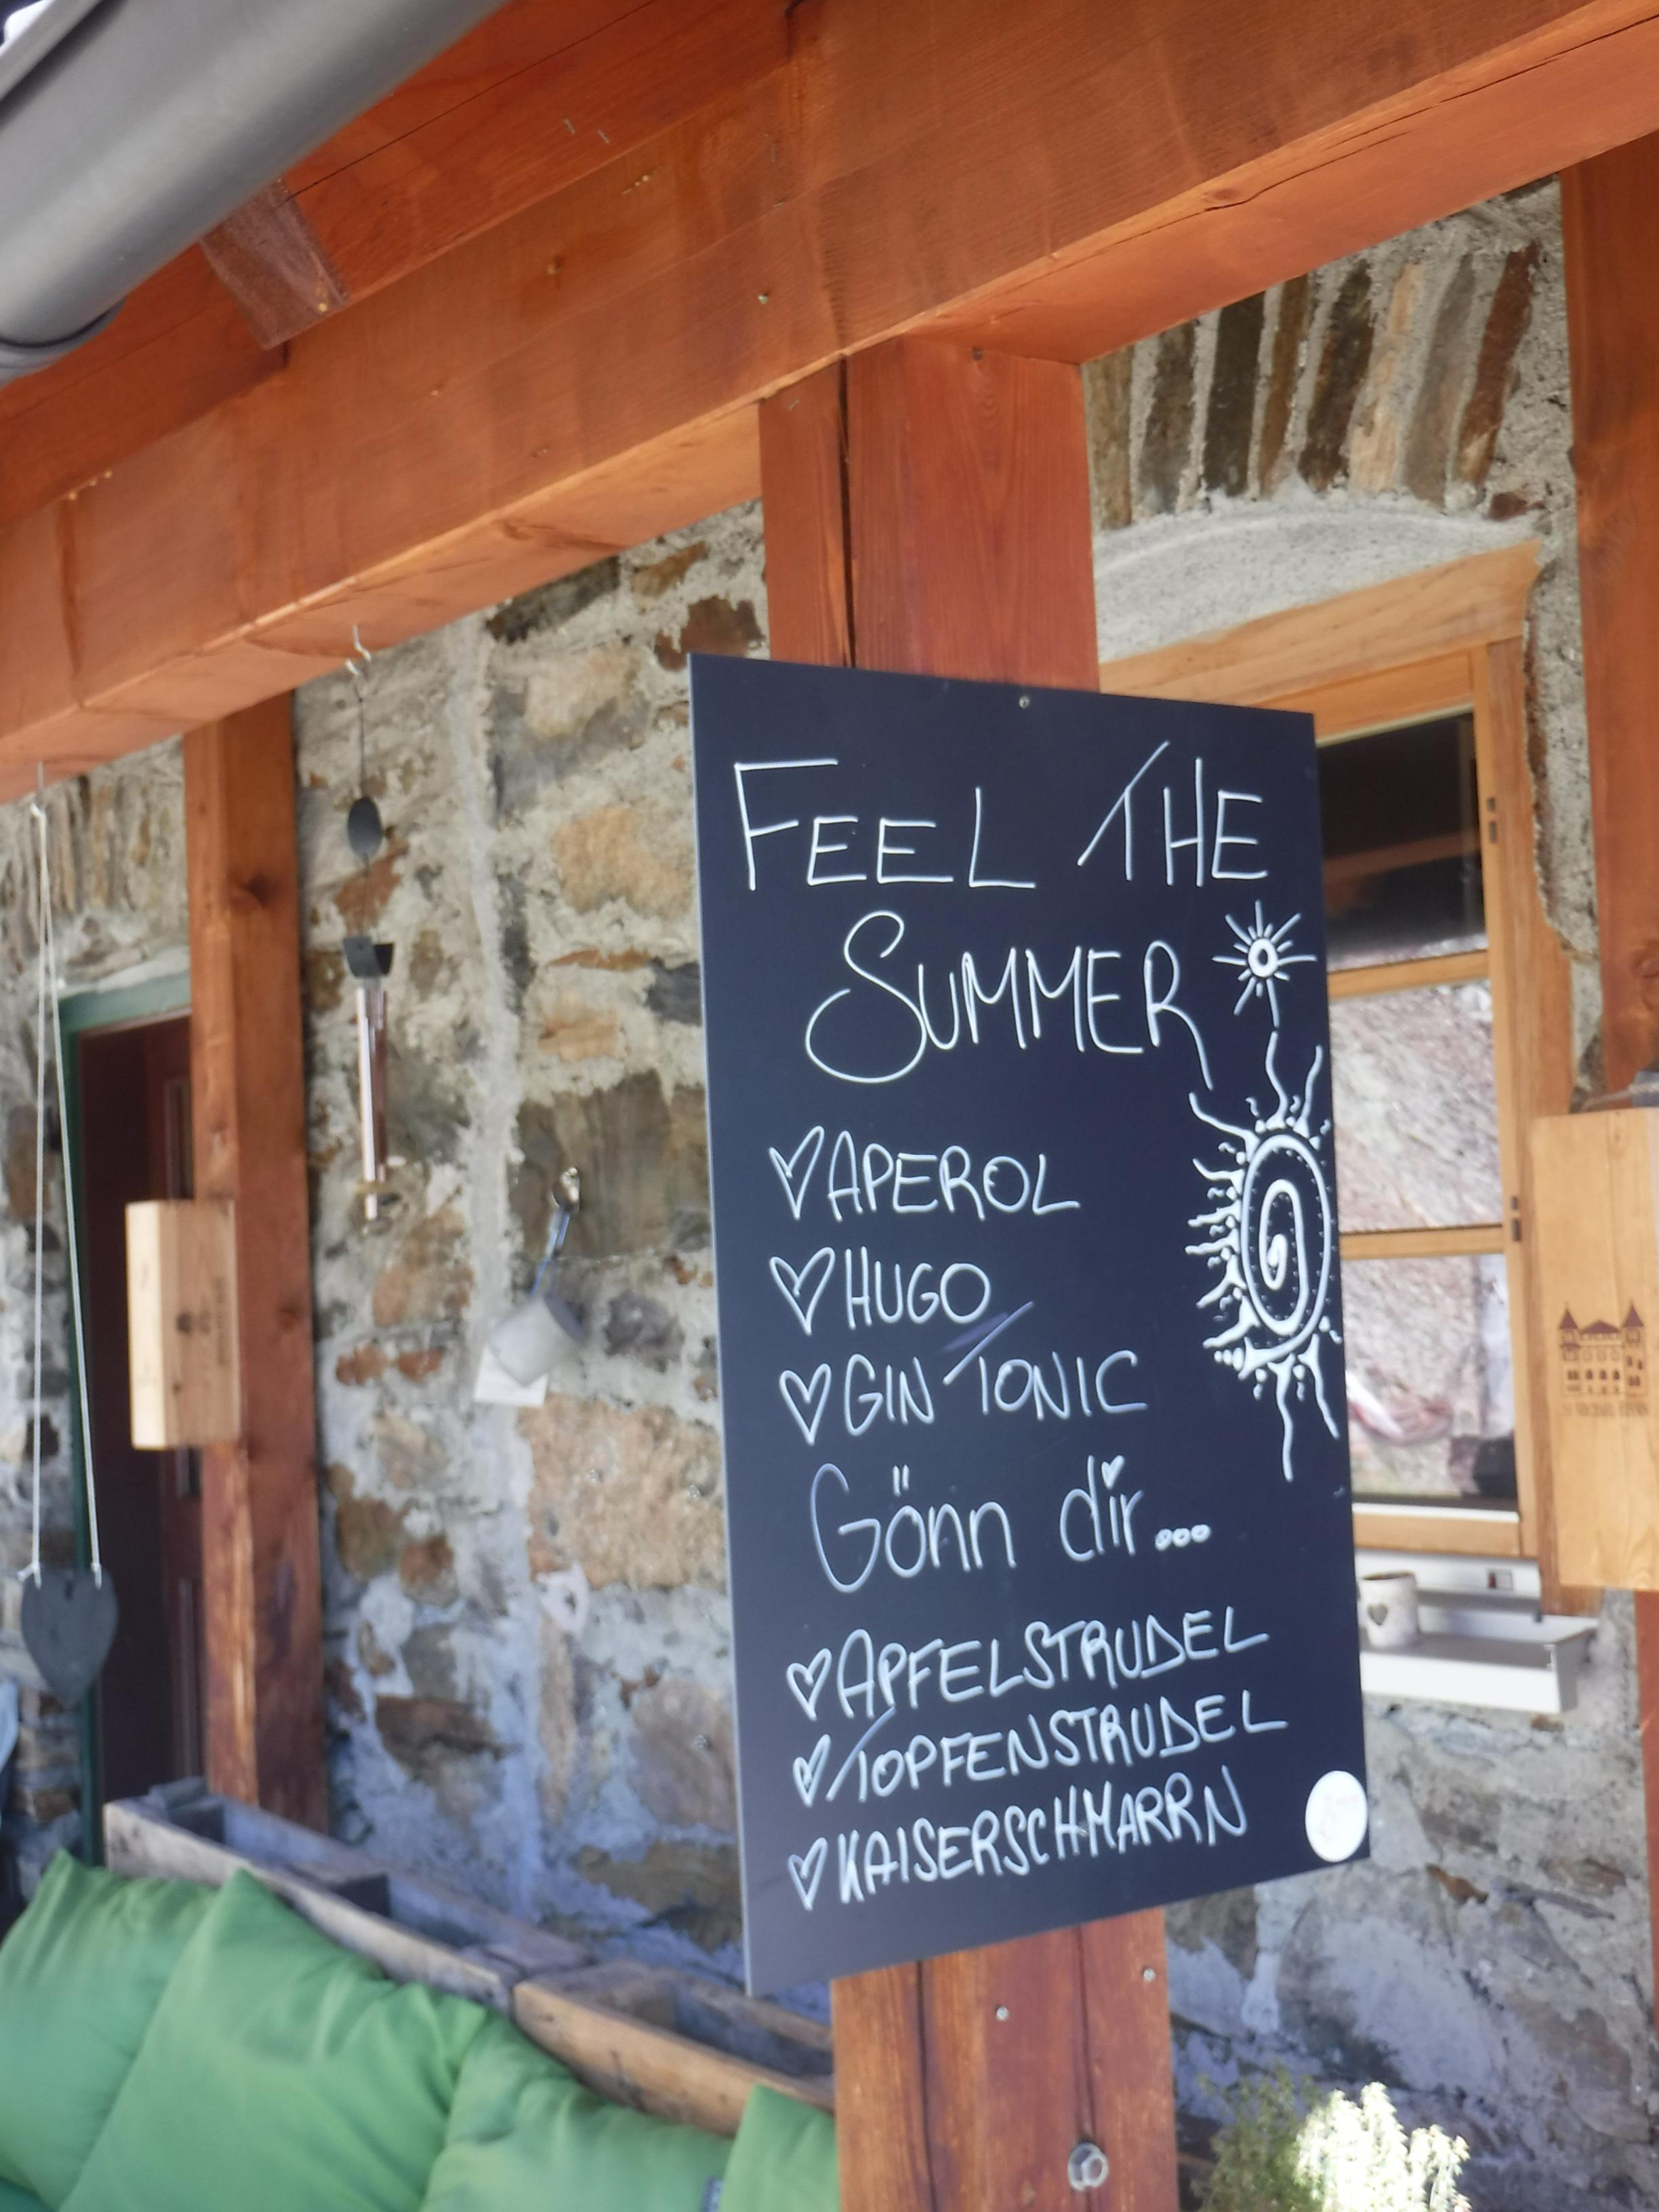 FEEL THE
SUMMER
APEROL
HUGO
GIN TONIC
Gönn dir...
APFELSTRUDEL
TOPFENSTRUDEL
KAISERSCHMARRN